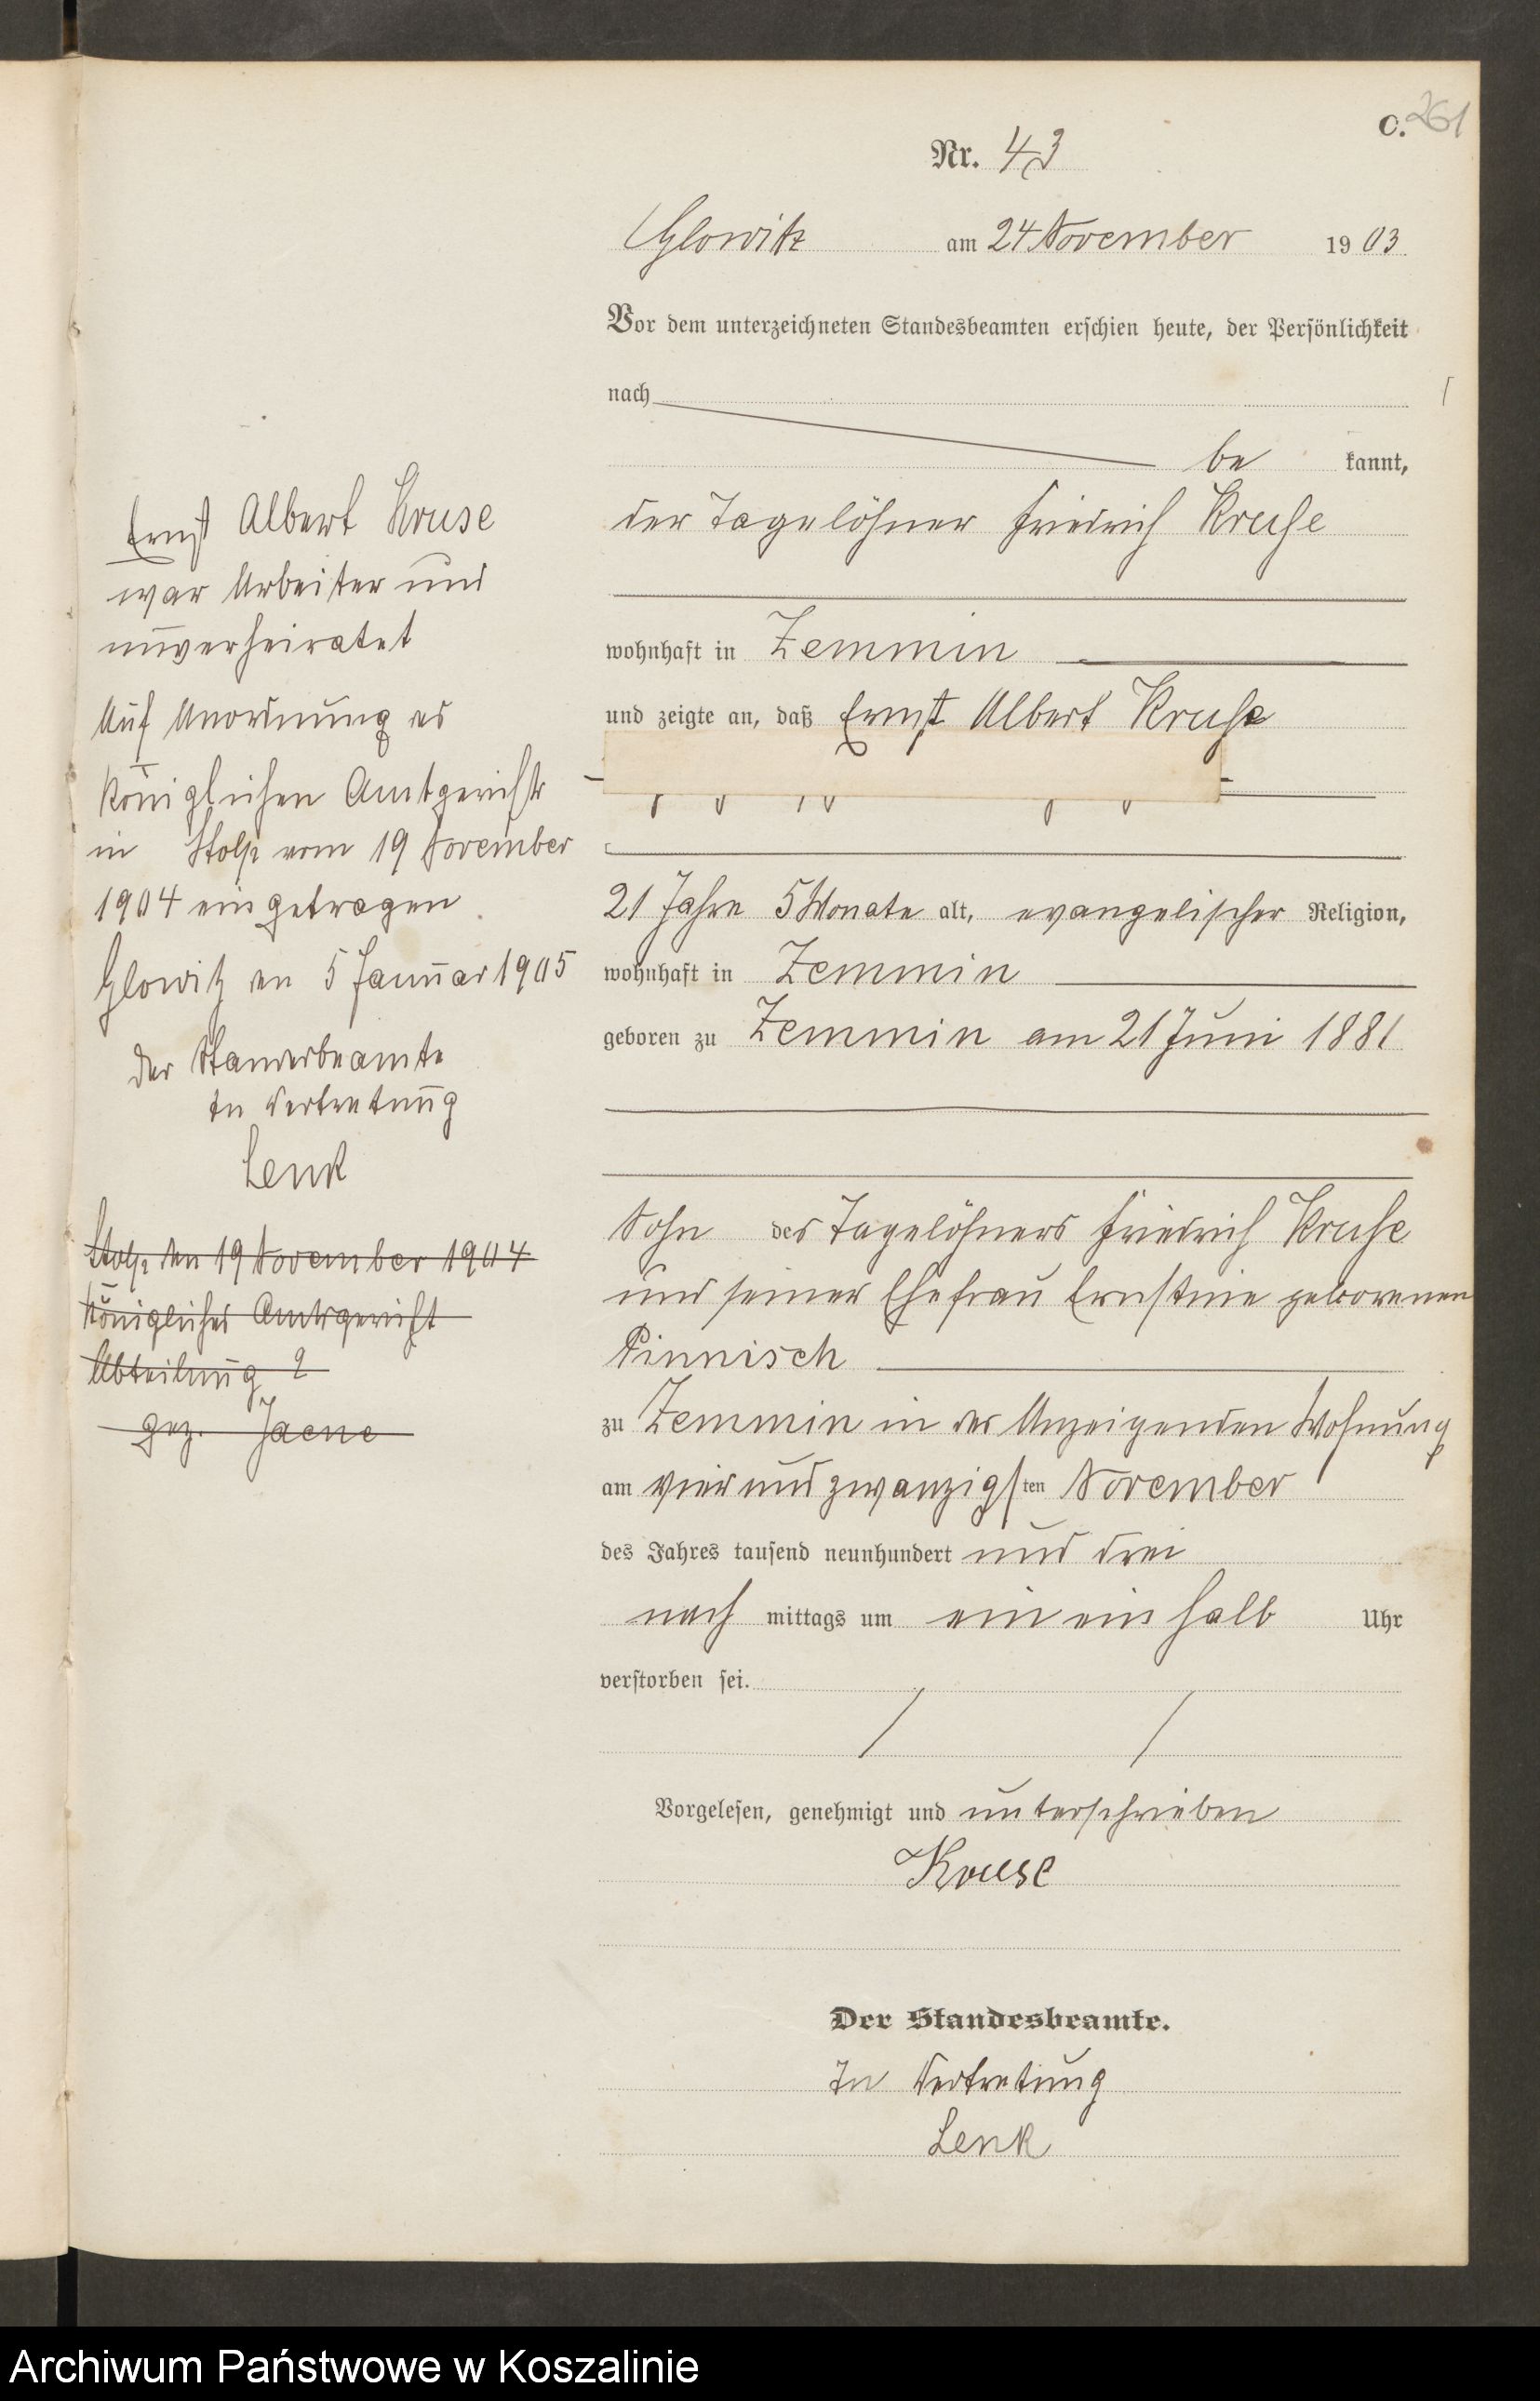 C. 261
Nr. 43
Glowitz am 24 November 1903
Vor dem unterzeichneten Standesbeamten erschien heute, der Persönlichkeit
nach
be kannt,
der Tagelöhner Friedrich Kruse
wohnhaft in Zemmin
und zeigte an, daß Ernst Albert Kruse
21 Jahre 5 Monate alt, evangelischer Religion,
wohnhaft in Zemmin
geboren zu Zemmin am 21 Juni 1881
Sohn des Tagelöhners Friedrich Kruse
und seiner Ehefrau Ernstine geborenen
Pinnisch
zu Zemmin in der Anzeigenden Wohnung
am vier und zwanzigsten November
des Jahres tausend neunhundert und drei
nach mittags um ein ein halb Uhr
verstorben sei.
Vorgelesen, genehmigt und unterschrieben
Kruse
Der Standesbeamte.
In Vertretung
Lenk
Ernst Albert Kruse
war Arbeiter und
unverheiratet
Auf Anordnung es
Königlichen Amtgerichts
in Stolp vom 19 November
1904 eingetragen
Glowitz en 5 Januar 1905
Der Standesbeamte
In Vertretung
Lenk
Stolp den 19 November 1904
Königliches Amtsgericht
Abteilung 2
gez. Jaene
Archiwum Państwowe w Koszalinie